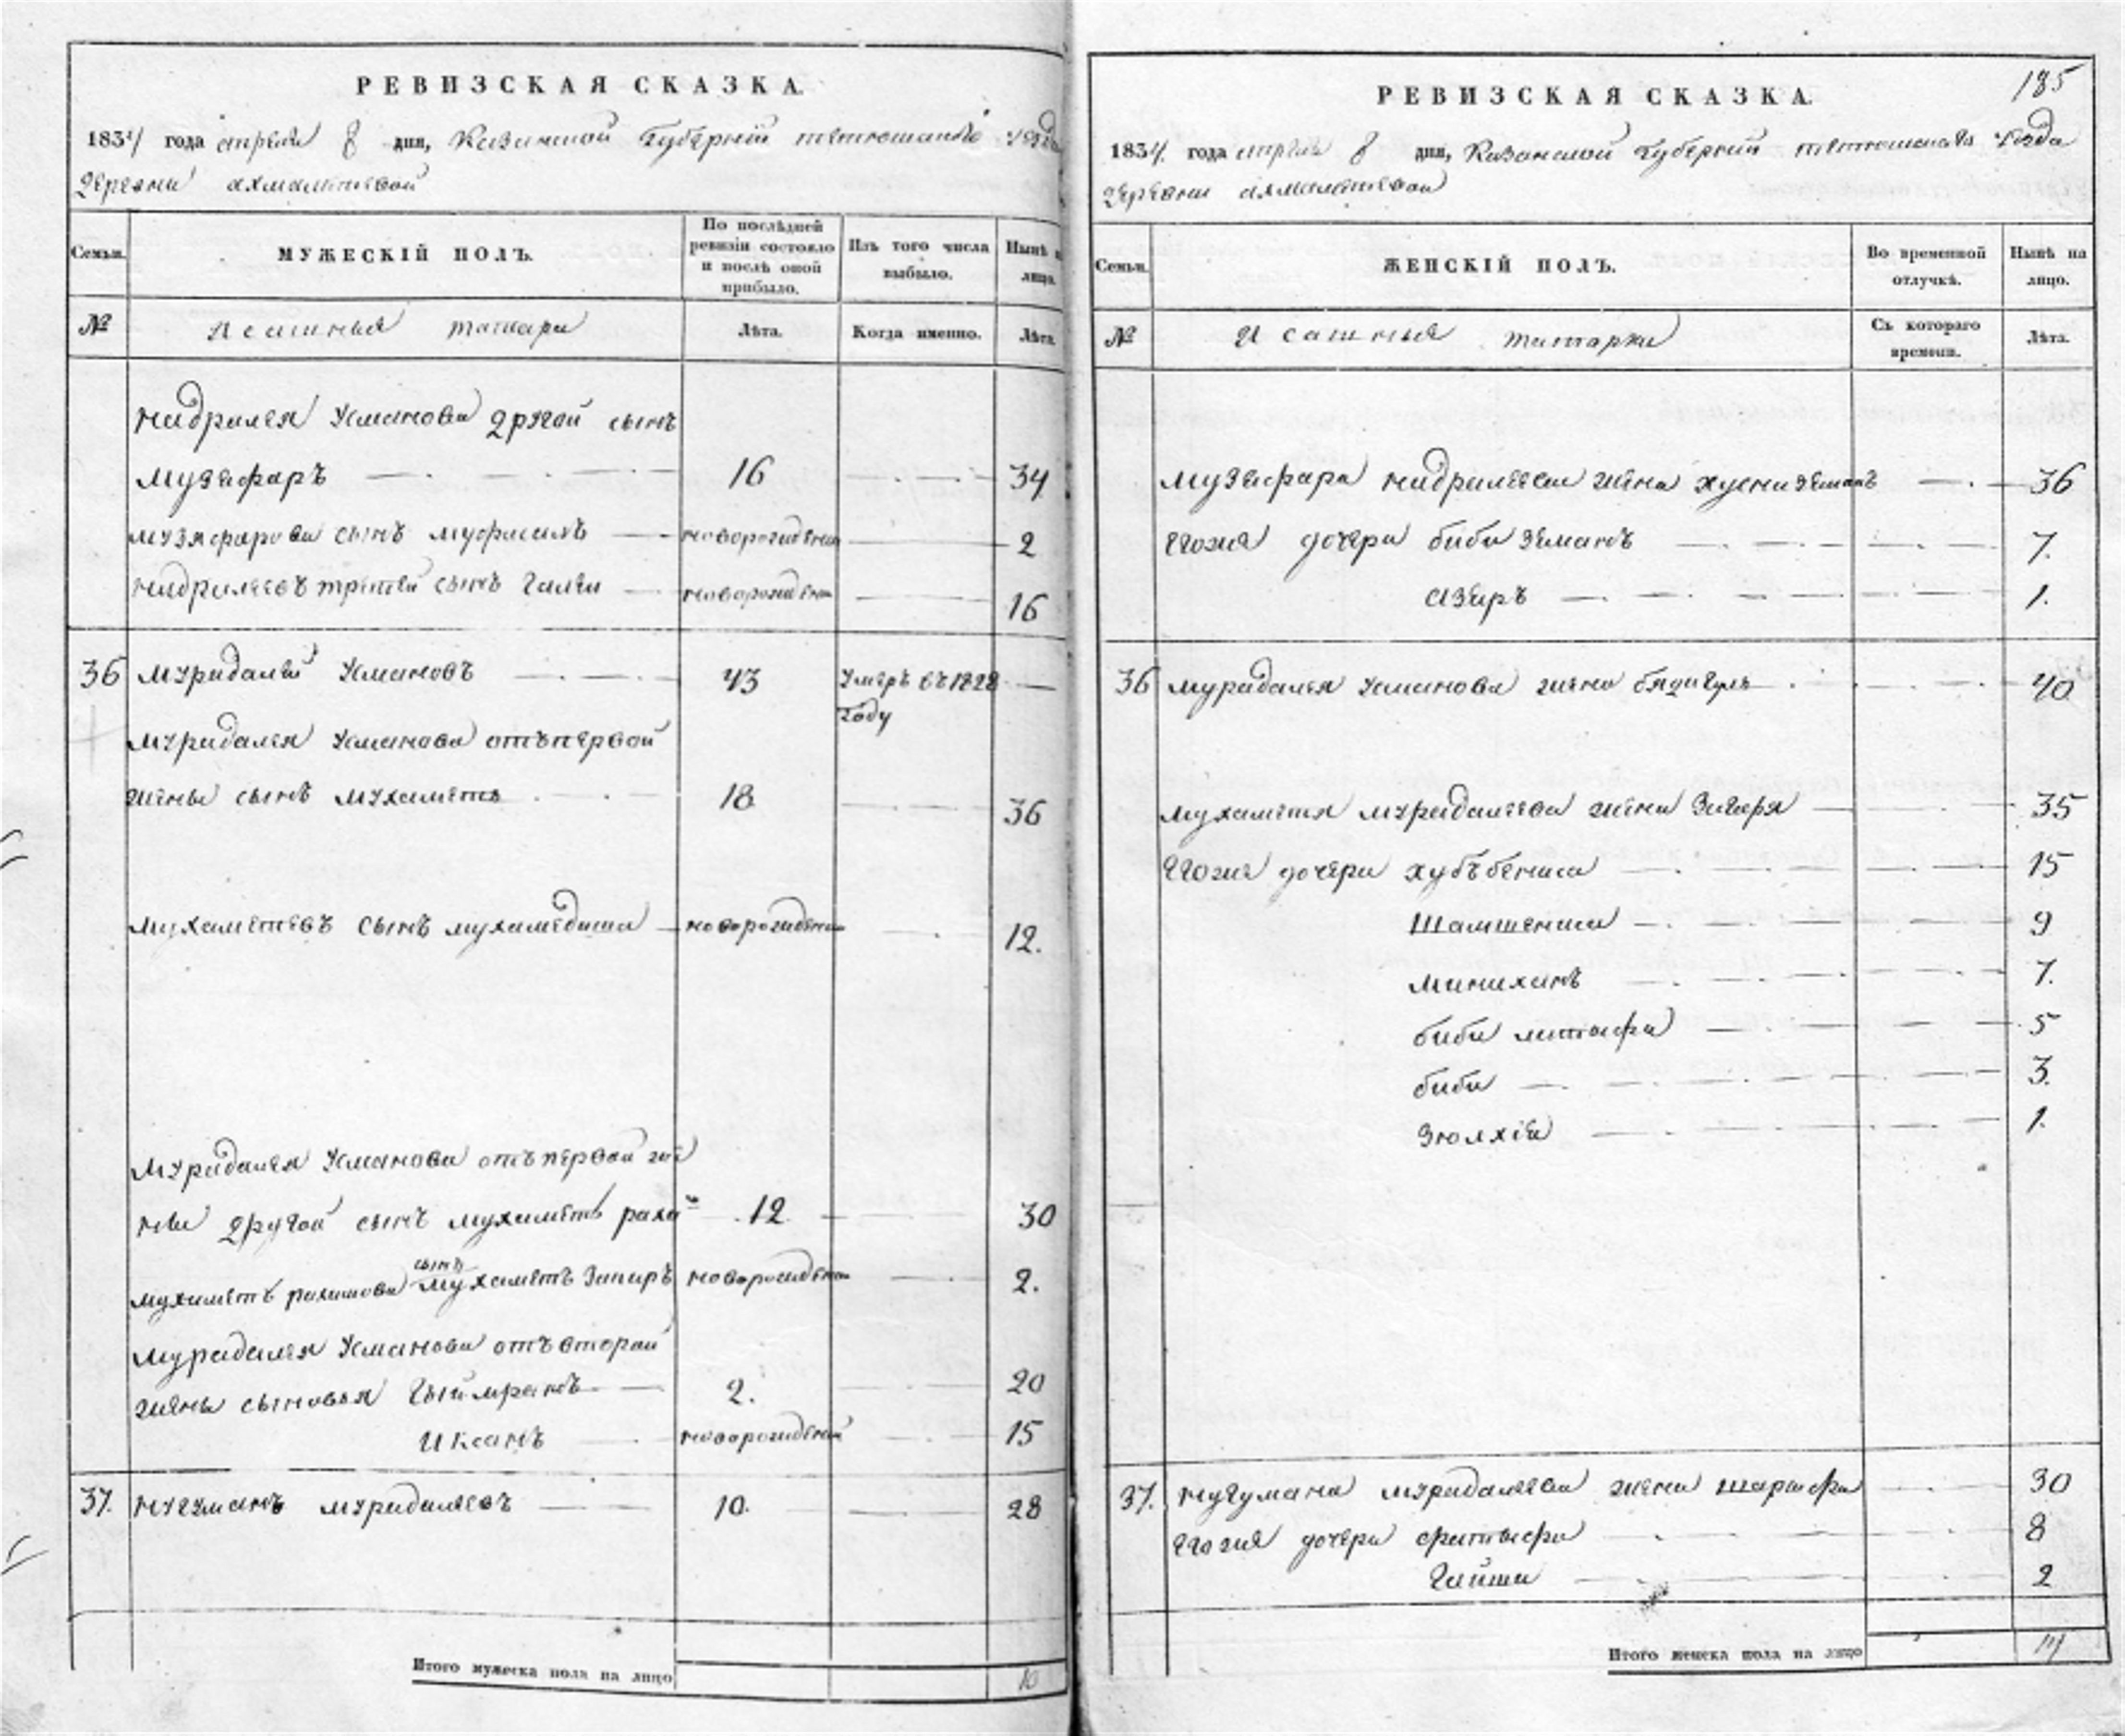 РЕВИЗСКАЯ СКАЗКА.
1834 года апреля 8 дня, Казанской Губернии тетюшскаго уезда
деревни ахмаметевой
Семьи. МУЖЕСКІЙ ПОЛЪ. По послѣдней ревизіи состояло и послѣ оной прибыло. Изъ того числа выбыло. Нынѣ на лицо.
№ Ясашныя татары Лѣта. Когда именно. Лѣта.
надралея Усманова другой сынъ
музяфаръ 16 34
музяфарова сынъ муфасилъ новорожденъ 2
надралеевъ третей сынъ Галеи новорожденъ 16
36 муридалей Усмановъ 43 Умеръ въ 1828 —
году
муридалея Усманова отъ первой
жены сынъ мухаметь 18 36
мухаметевъ сынъ мухамедиша новорожденъ 12.
муридалея Усманова отъ первой же
ны другой сынъ мухаметь рахи 12 30
сынъ
мухаметъ рахимова мухаметъ Закиръ новорожден 2.
муридалея Усманова отъ второй
жены сыновья Гыймранъ 2. 20
Иксанъ новорожденъ 15
37. нугуманъ муридалеевъ 10. 28
Итого мужеска пола на лицо 10
185
РЕВИЗСКАЯ СКАЗКА.
1834. года апреля 8 дня, Казанской Губернии тетюшскаго Уезда
деревни ахмаметевой
Семьи. ЖЕНСКІЙ ПОЛЪ. Во временной отлучкѣ. Нынѣ на лицо.
№ Исашныя татарки Съ котораго времени. Лѣта.
музяфара надралеева жена хуснизяманъ 36
Егожя дочери биби зяманъ 7.
Азяръ 1.
36 мурадалея Усманова жена бядигуль 40
мухаметя муридалеева жена Загаря 35
Егожя дочери хубъбениса 15
Шамшениса 9
Миниханъ 7.
биби латыфа 5
биби 3.
Зюлхія 1.
37. нугумана муридалеева жена шарифа 30
Егожя дочери фатыфа 8
Гайша 2
Итого женска пола на лицо 14